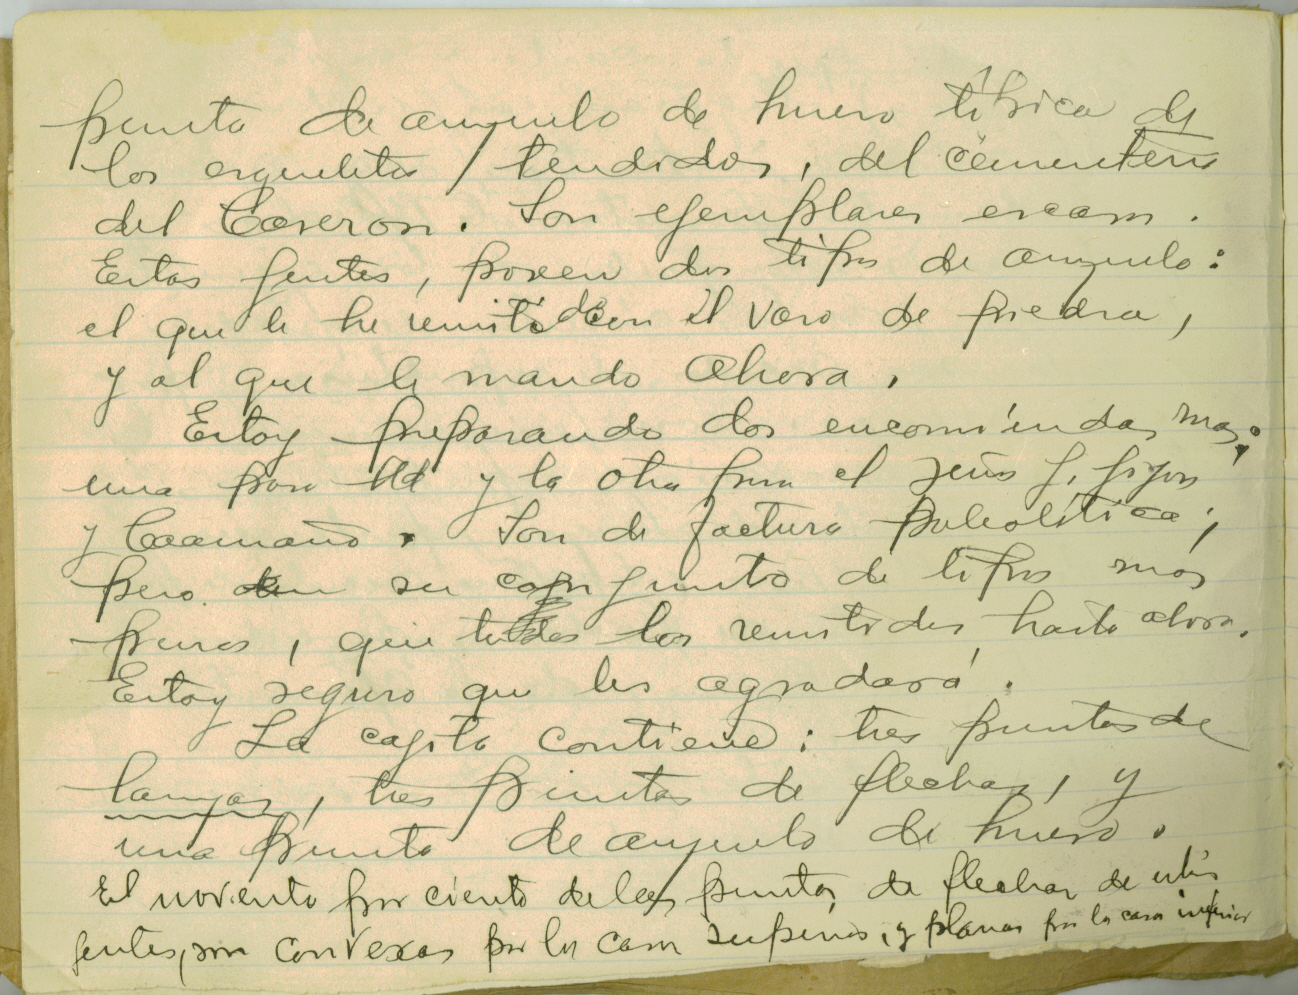 punta de anzuelo de hueso típica de
los esqueletos tendidos, del cementerio
del Caseron. Son ejemplares escasos.
Estas gentes, poseen dos tipos de anzuelo:
el que le he remitido con el vaso de piedra,
y al que le mando ahora.
Estoy preparando dos encomiendas mas;
una para Ud y la otra para el señor
y Caamaño. Son de factura paleolítica;
pero en su conjunto de tipos mas
puros, que todos los remitidos hasta ahora.
Estoy seguro que les agradará.
La cajita contiene: tres puntas de
lanzas, tres puntas de flechas, y
una punta de anzuelo de hueso.
El noventa por ciento de las puntas de flechas de estas
gentes, son convexas por la cara superior, y planas por la cara inferior